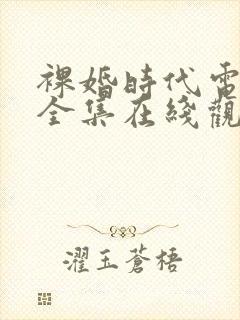 裸婚時代電
全集在綫觀
濯玉蒼梧